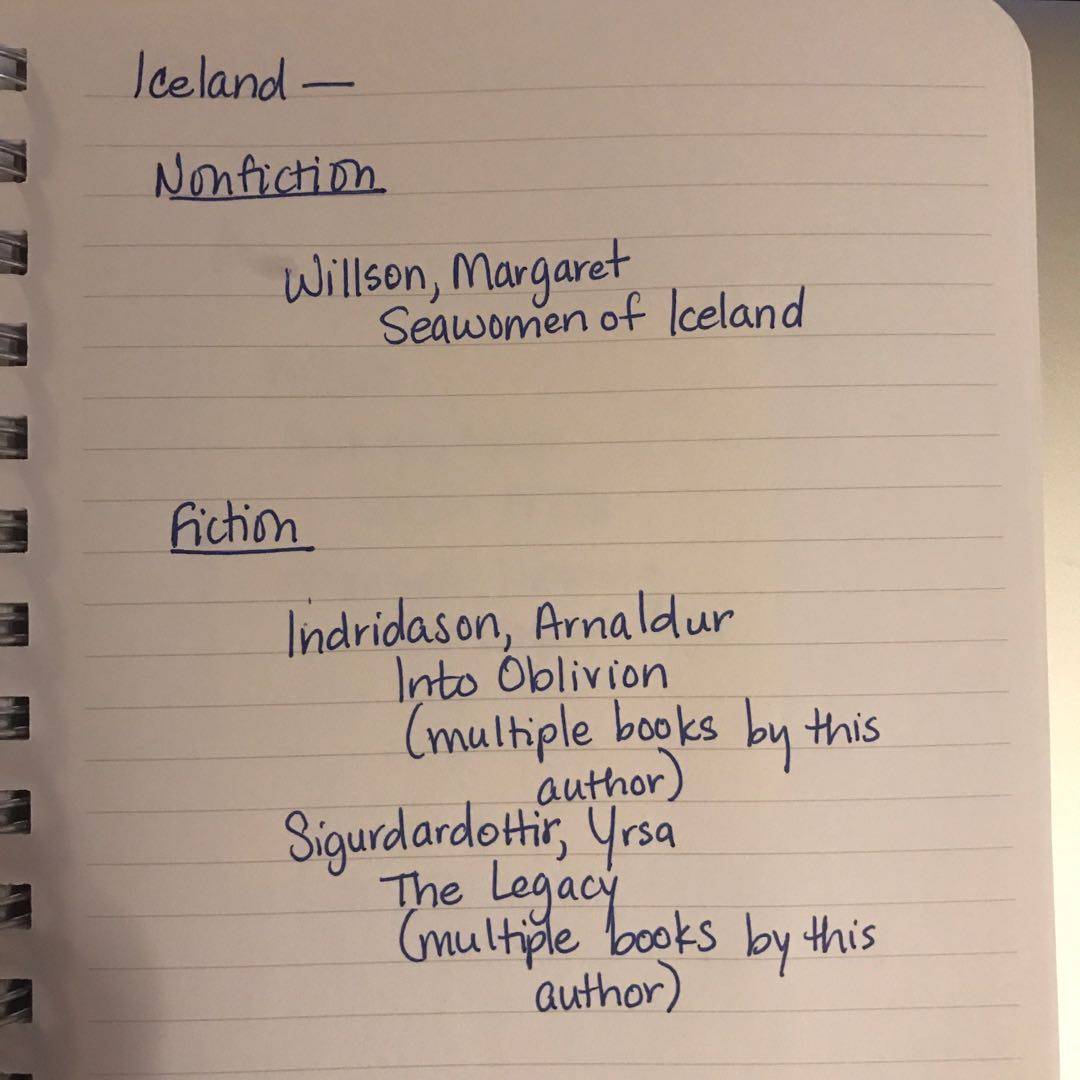 Iceland —
Nonfiction
Willson, Margaret
Seawomen of Iceland
Fiction
Indridason, Arnaldur
Into Oblivion
(multiple books by this
author)
Sigurdardottir, Yrsa
The Legacy
(multiple books by this
author)